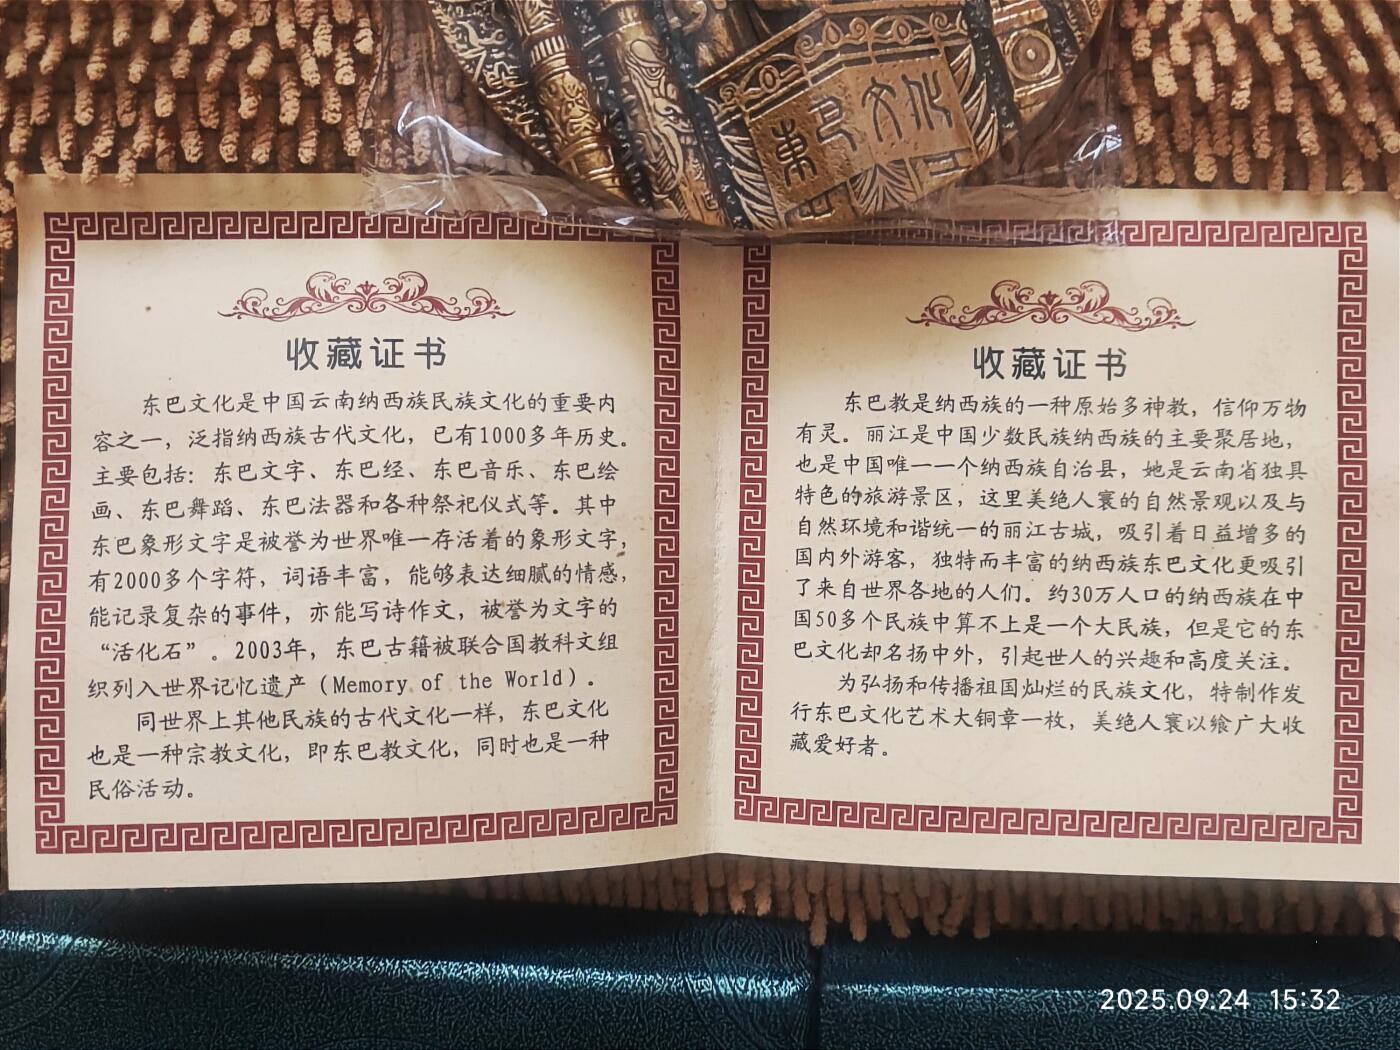 東巴文化
收藏证书
东巴文化是中国云南纳西族民族文化的重要内
容之一，泛指纳西族古代文化，已有1000多年历史。
主要包括：东巴文字、东巴经、东巴音乐、东巴绘
画、东巴舞蹈、东巴法器和各种祭祀仪式等。其中
东巴象形文字是被誉为世界唯一存活着的象形文字，
有2000多个字符，词语丰富，能够表达细腻的情感，
能记录复杂的事件，亦能写诗作文，被誉为文字的
“活化石”。2003年，东巴古籍被联合国教科文组
织列入世界记忆遗产（Memory of the World）.
同世界上其他民族的古代文化一样，东巴文化
也是一种宗教文化，即东巴教文化，同时也是一种
民俗活动。
收藏证书
东巴教是纳西族的一种原始多神教，信仰万物
有灵。丽江是中国少数民族纳西族的主要聚居地，
也是中国唯一一个纳西族自治县，她是云南省独具
特色的旅游景区，这里美绝人寰的自然景观以及与
自然环境和谐统一的丽江古城，吸引着日益增多的
国内外游客，独特而丰富的纳西族东巴文化更吸引
了来自世界各地的人们。约30万人口的纳西族在中
国50多个民族中算不上是一个大民族，但是它的东
巴文化却名扬中外，引起世人的兴趣和高度关注。
为弘扬和传播祖国灿烂的民族文化，特制作发
行东巴文化艺术大铜章一枚，美绝人寰以飨广大收
藏爱好者。
2025.09.24 15:32